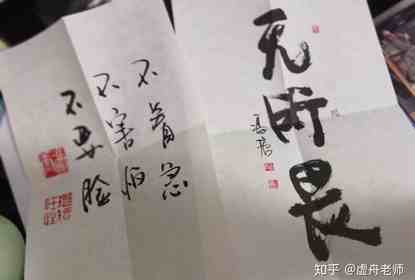 无所畏
冯唐
不着急
不害怕
不要脸
知乎 @虚舟老师